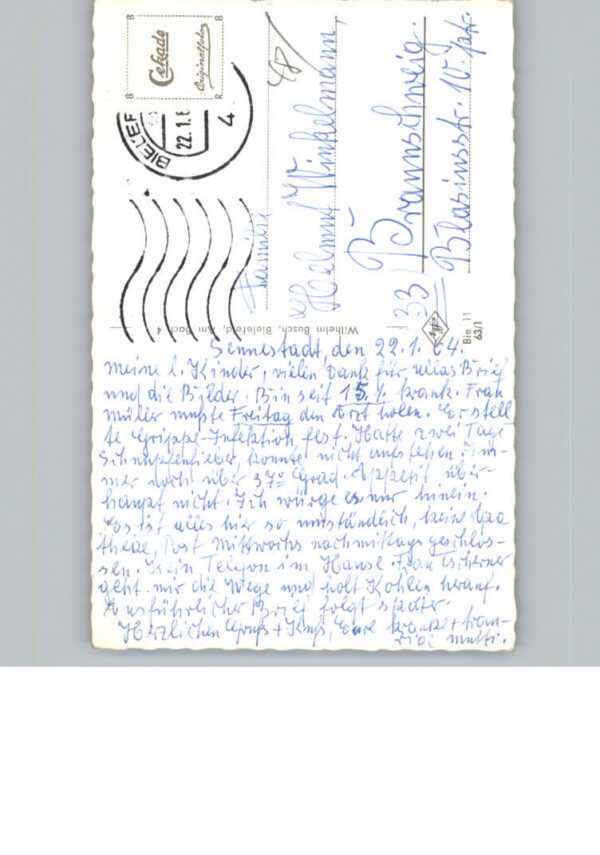 Cekade
Originalfoto
BIELEF
22.1.6
4
48
Familie
Helmut Winkelmann,
33) Braunschweig.
Blasiusstr. 10. ptr.
Wilhelm Busch, Bielefeld, Am Bach 4
Agfa
Bie 11
63/1
Sennestadt, den 22.1.64.
Meine l. Kinder, vielen Dank für Ullas Brief
und die Bilder. Bin seit 15.1. krank. Frau
Müller mußte Freitag den Arzt holen. Er stell
te Grippe-Infektion fest. Hatte zwei Tage
Schnupfenfieber, konnte nicht aufstehen. Im-
mer noch über 37° Grad. Appetit über-
haupt nicht. Ich würge es nur hinein.
Es ist alles hier so umständlich, keine Apo
theke, Post Mittwochs nachmittags geschlos-
sen. Kein Telefon im Hause. Frau Tscherner
geht mir die Wege und holt Kohlen herauf.
Ausführlicher Brief folgt später.
Herzlichen Gruß + Kuß, Eure kranke + trau-
rige Mutti.